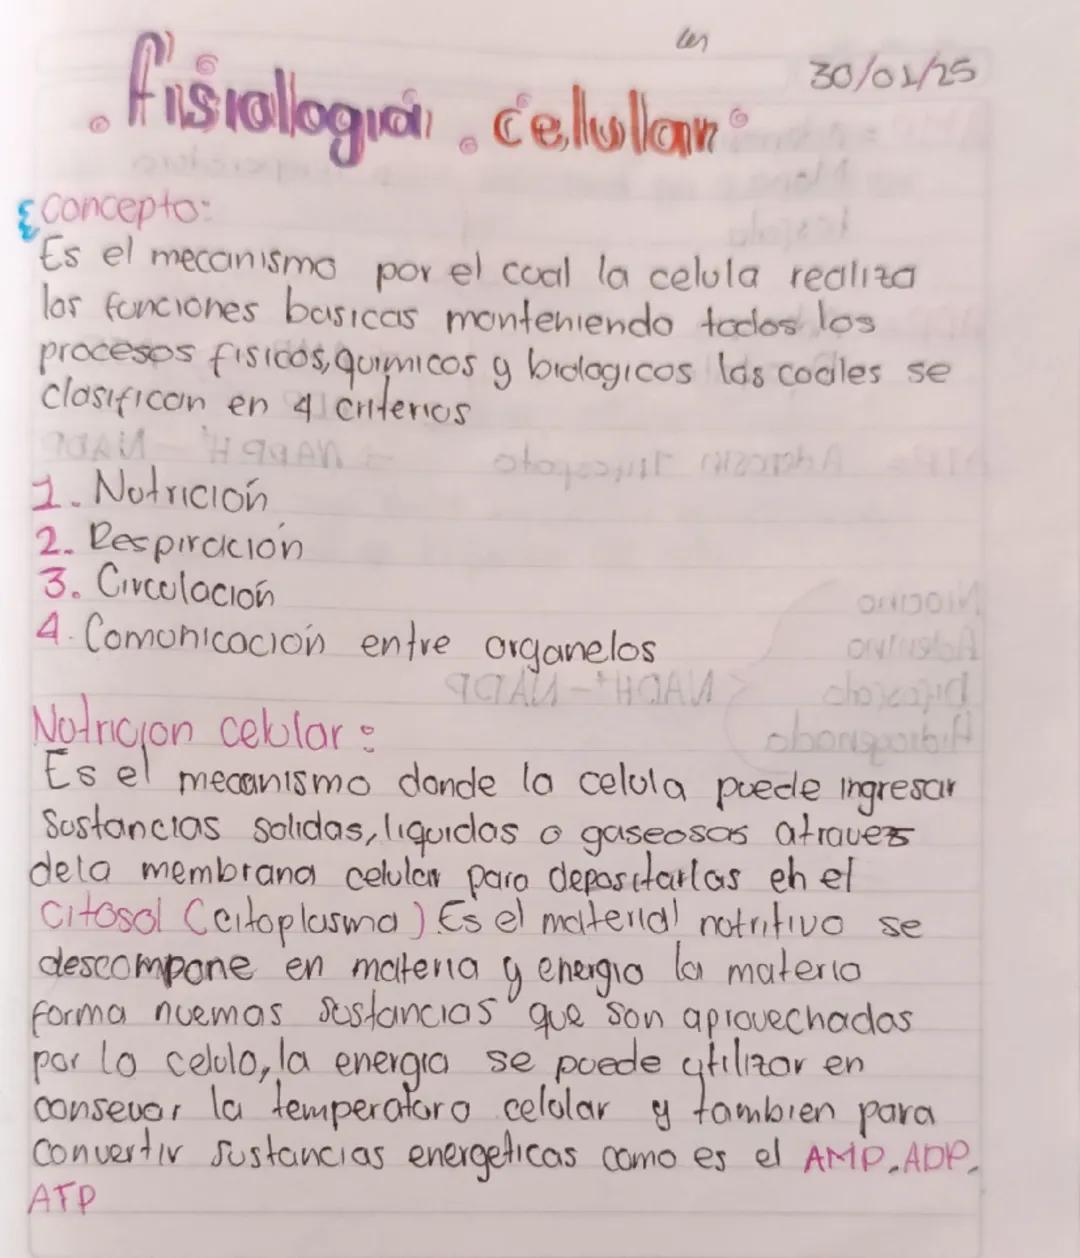 30/01/25
.fisiología.celular.
Concepto:
Es el mecanismo por el cual la celula realiza
las funciones basicas manteniendo todos los
procesos fisicos, quimicos y biologicos las cuales se
clasifican en 4 criterios
1. Nutrición
2. Respiración
3. Circulación
4. Comunicación entre organelos
Nutricion celular:
Es el mecanismo donde la celula puede ingresar
sustancias solidas, liquidas o gaseosas atraves
dela membrana celular para depositarlas en el
citosol (citoplasma) Es el material nutritivo se
descompone en materia y energia la materia
forma nuemas sustancias que son aprovechadas
por la celula, la energia se puede utilizar en
consevar la temperatura celular y tambien para
convertir sustancias energeticas como es el AMP, ADP,
ATP